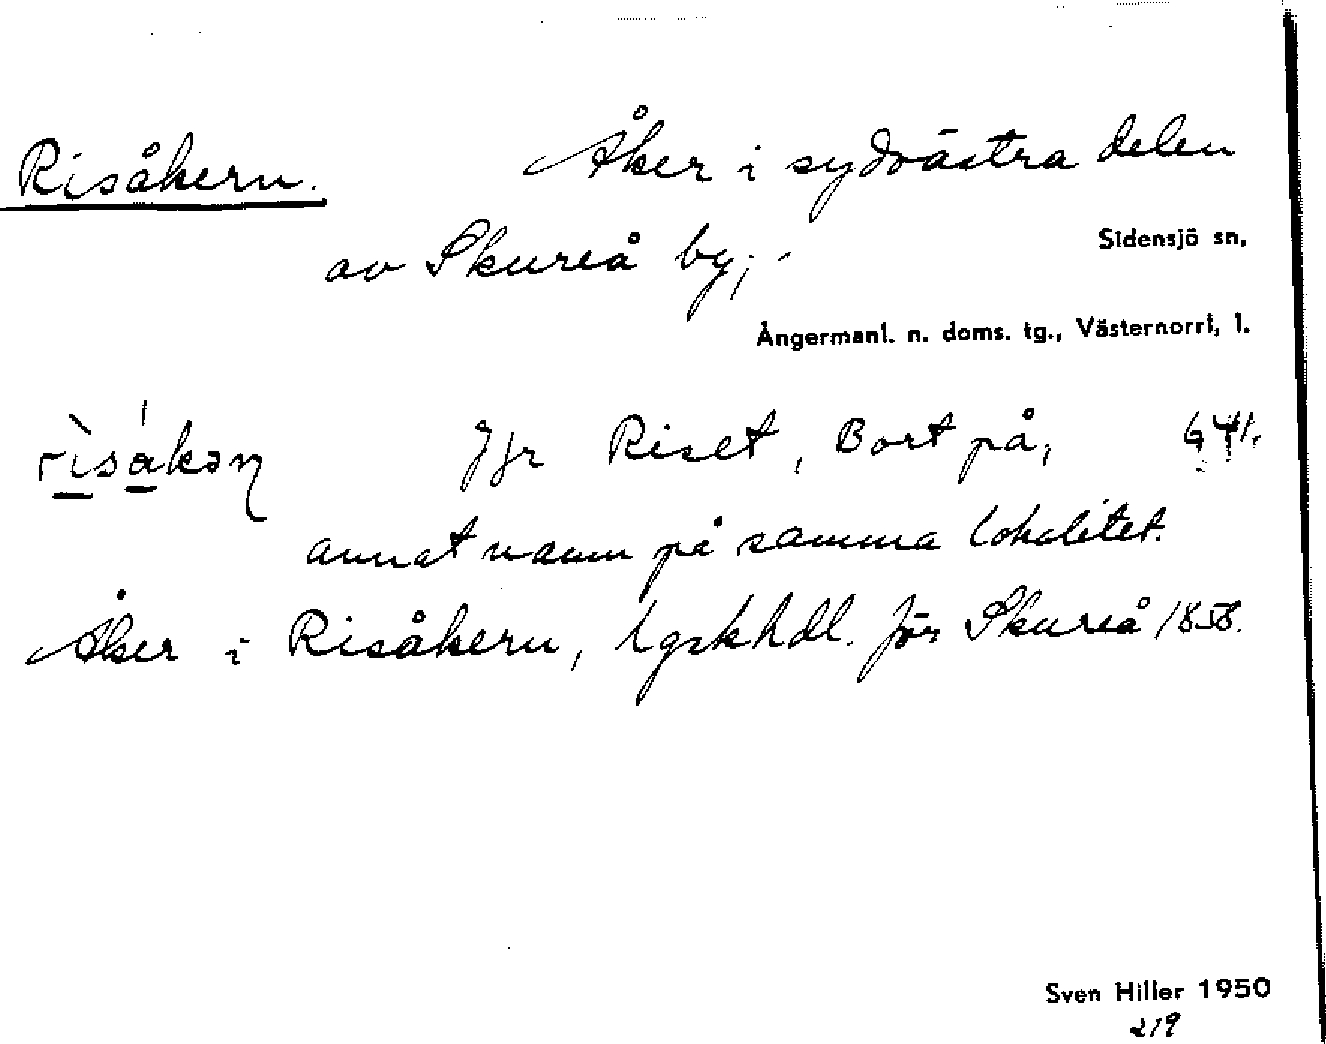 Risåkern. Åker i sydvästra delen
av Skureå by;-
Sidensjö sn,
Ångermanl. n. doms. tg., Västernorrl, l.
rìsákən Jfr Riset, Bort på,
annat namn på samma lokalitet.
Åker i Risåkern, Lgskhdl. för Skureå 1858.
Sven Hiller 1950
219